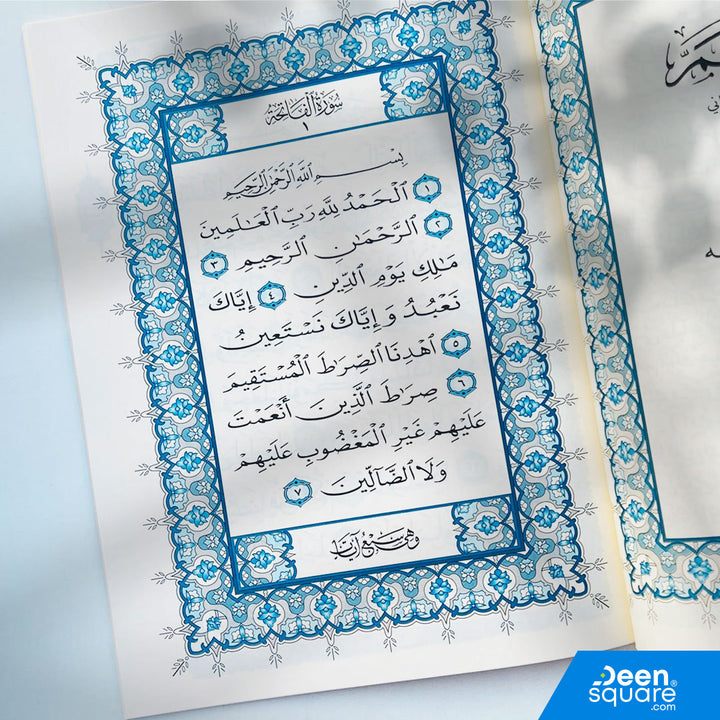 سُورَةُ ٱلْفَاتِحَةِ
١
بِسْمِ ٱللَّهِ ٱلرَّحْمَٰنِ ٱلرَّحِيمِ
١ ٱلْحَمْدُ لِلَّهِ رَبِّ ٱلْعَٰلَمِينَ
٢ ٱلرَّحْمَٰنِ ٱلرَّحِيمِ ٣
مَٰلِكِ يَوْمِ ٱلدِّينِ ٤ إِيَّاكَ
نَعْبُدُ وَإِيَّاكَ نَسْتَعِينُ
٥ ٱهْدِنَا ٱلصِّرَٰطَ ٱلْمُسْتَقِيمَ
٦ صِرَٰطَ ٱلَّذِينَ أَنْعَمْتَ
عَلَيْهِمْ غَيْرِ ٱلْمَغْضُوبِ عَلَيْهِمْ
وَلَا ٱلضَّآلِّينَ ٧
وَهِيَ سَبْعُ آيَاتٍ
Deen
square®
.com